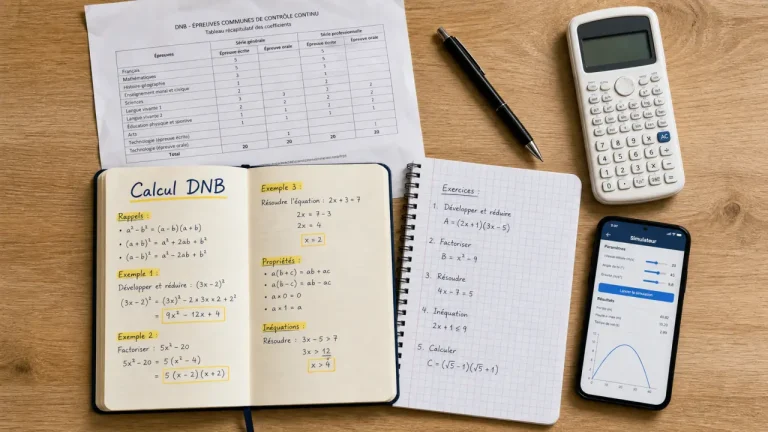 DNB - ÉPREUVES COMMUNES DE CONTRÔLE CONTINU
Tableau récapitulatif des coefficients
Série générale Série professionnelle
Épreuves Épreuve écrite Épreuve orale Épreuve écrite Épreuve orale
Français
Mathématiques
Histoire-géographie
Enseignement moral et civique
Sciences
Langue vivante 1
Langue vivante 2
Éducation physique et sportive
Arts
Technologie (épreuve écrite)
Technologie (épreuve orale)
Total 20 20 20 20
Calcul DNB
Rappels :
• a² - b² = (a-b)(a+b)
• (a+b)² = a² + 2ab + b²
• (a-b)² = a² - 2ab + b²
Exemple 1 :
Développer et réduire : (3x-2)²
(3x-2)² = (3x)² - 2×3x×2 + 2²
= 9x² - 12x + 4
Exemple 2
Factoriser : 5x² - 20
5x² - 20 = 5(x² - 4)
= 5(x-2)(x+2)
Exemple 3
Résoudre l'équation : 2x + 3 = 7
2x = 7 - 3
2x = 4
x = 2
Propriétés :
• a(b+c) = ab + ac
• a(b-c) = ab - ac
• a×0 = 0
• a×1 = a
Inéquations :
Résoudre : 3x - 5 > 7
3x > 12
x > 4
Exercices :
1. Développer et réduire
A = (2x+1)(3x-5)
2. Factoriser
B = x² - 9
3. Résoudre
4x - 7 = 5
4. Inéquation
2x + 1 ≤ 9
5. Calculer
C = (√5 - 1)(√5 + 1)
AC
Simulateur
Paramètres
Lancer la simulation
Résultats